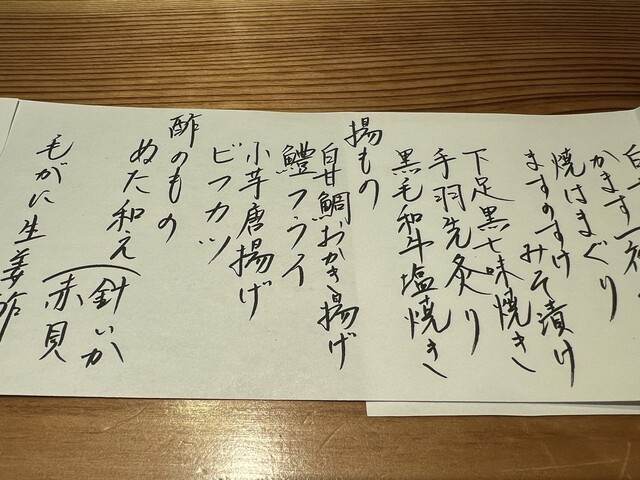 かます一夜
焼はまぐり
ますのすけみそ漬け
下足黒七味焼き
手羽先炙り
黒毛和牛塩焼き
揚もの
白甘鯛おかき揚げ
鱧フライ
小芋唐揚げ
ビフカツ
酢のもの
ぬた和え(針いか
赤貝
毛がに生姜酢